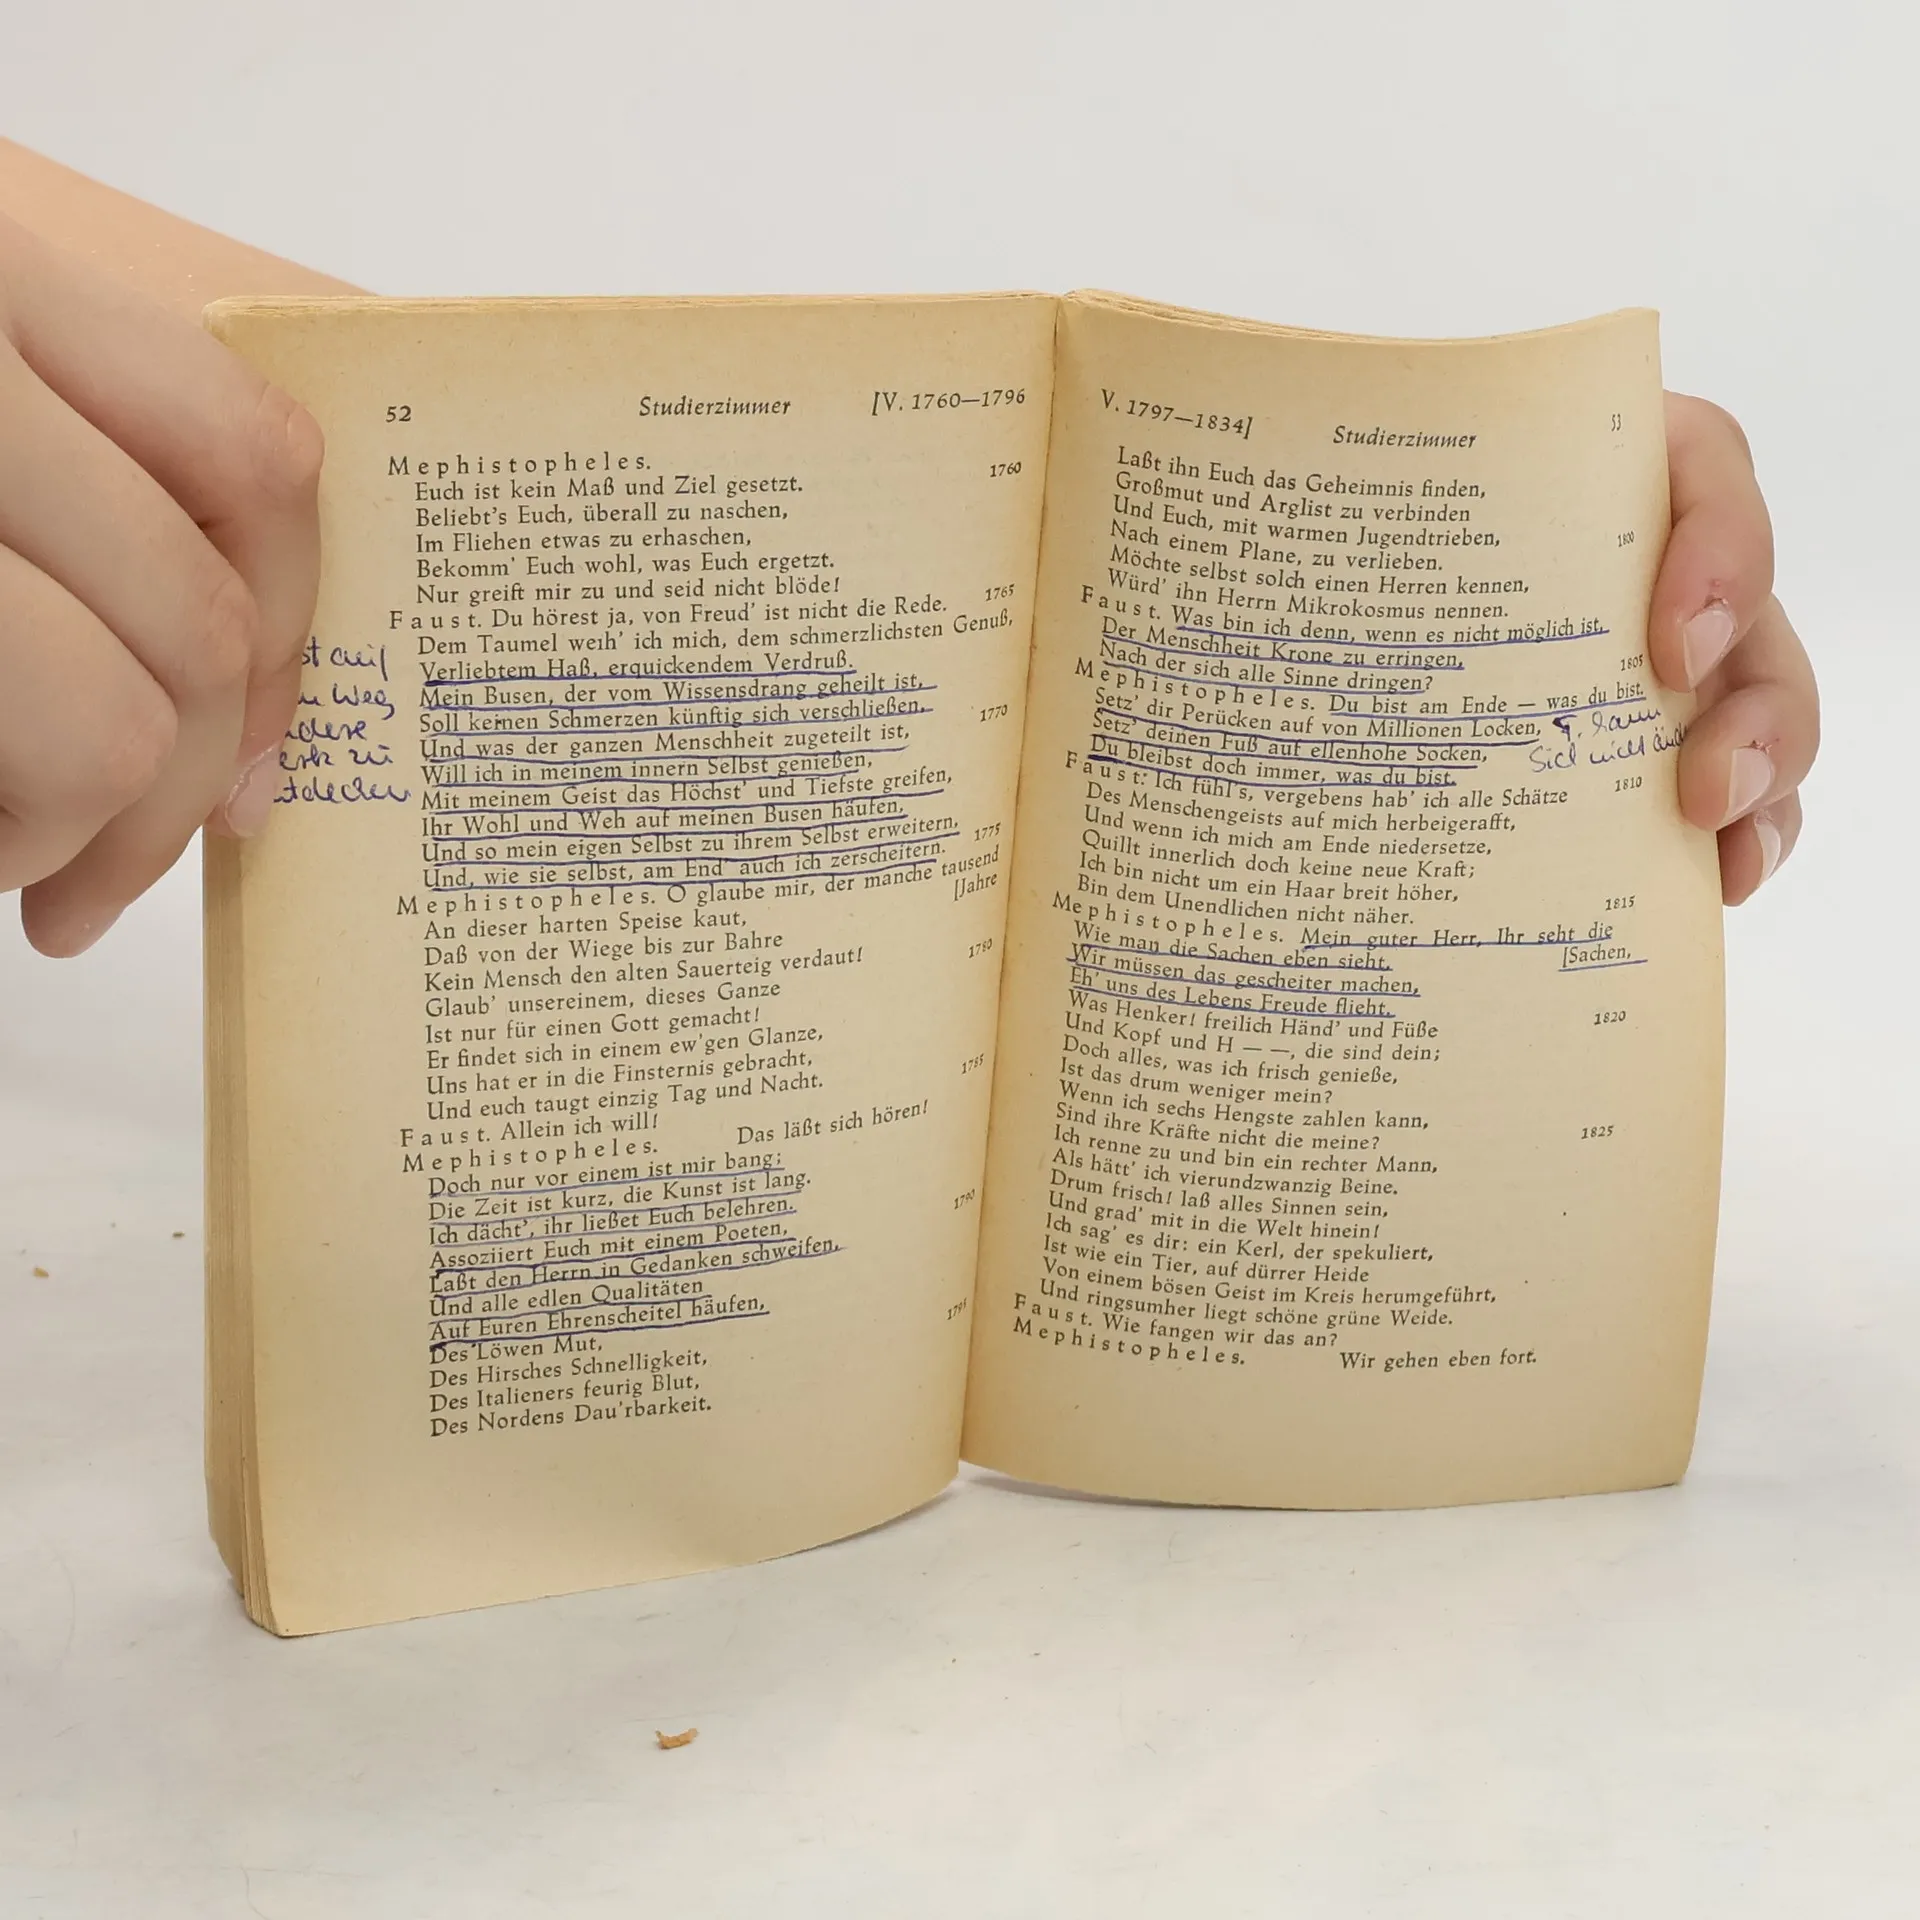 52 Studierzimmer [V. 1760—1796
Mephistopheles. 1760
Euch ist kein Maß und Ziel gesetzt.
Beliebt's Euch, überall zu naschen,
Im Fliehen etwas zu erhaschen,
Bekomm' Euch wohl, was Euch ergetzt.
Nur greift mir zu und seid nicht blöde!
Faust. Du hörest ja, von Freud' ist nicht die Rede. 1765
Dem Taumel weih' ich mich, dem schmerzlichsten Genuß,
Verliebtem Haß, erquickendem Verdruß.
Mein Busen, der vom Wissensdrang geheilt ist,
Soll keinen Schmerzen künftig sich verschließen,
Und was der ganzen Menschheit zugeteilt ist, 1770
Will ich in meinem innern Selbst genießen,
Mit meinem Geist das Höchst' und Tiefste greifen,
Ihr Wohl und Weh auf meinen Busen häufen,
Und so mein eigen Selbst zu ihrem Selbst erweitern,
Und, wie sie selbst, am End' auch ich zerscheitern. 1775
Mephistopheles. O glaube mir, der manche tausend
[Jahre
An dieser harten Speise kaut,
Daß von der Wiege bis zur Bahre
Kein Mensch den alten Sauerteig verdaut!
Glaub' unsereinem, dieses Ganze 1780
Ist nur für einen Gott gemacht!
Er findet sich in einem ew'gen Glanze,
Uns hat er in die Finsternis gebracht,
Und euch taugt einzig Tag und Nacht.
Faust. Allein ich will! 1785
Mephistopheles. Das läßt sich hören!
Doch nur vor einem ist mir bang;
Die Zeit ist kurz, die Kunst ist lang.
Ich dächt', ihr ließet Euch belehren.
Assoziiert Euch mit einem Poeten, 1790
Laßt den Herrn in Gedanken schweifen,
Und alle edlen Qualitäten
Auf Euren Ehrenscheitel häufen,
Des Löwen Mut, 1795
Des Hirsches Schnelligkeit,
Des Italieners feurig Blut,
Des Nordens Dau'rbarkeit.
auf
Weg
zu
V. 1797—1834] Studierzimmer 53
Laßt ihn Euch das Geheimnis finden,
Großmut und Arglist zu verbinden
Und Euch, mit warmen Jugendtrieben,
Nach einem Plane, zu verlieben. 1800
Möchte selbst solch einen Herren kennen,
Würd' ihn Herrn Mikrokosmus nennen.
Faust. Was bin ich denn, wenn es nicht möglich ist,
Der Menschheit Krone zu erringen,
Nach der sich alle Sinne dringen? 1805
Mephistopheles. Du bist am Ende — was du bist.
Setz' dir Perücken auf von Millionen Locken,
Setz' deinen Fuß auf ellenhohe Socken,
Du bleibst doch immer, was du bist.
F. kann
sich nicht
Faust: Ich fühl's, vergebens hab' ich alle Schätze 1810
Des Menschengeists auf mich herbeigerafft,
Und wenn ich mich am Ende niedersetze,
Quillt innerlich doch keine neue Kraft;
Ich bin nicht um ein Haar breit höher,
Bin dem Unendlichen nicht näher. 1815
Mephistopheles. Mein guter Herr, Ihr seht die
[Sachen,
Wie man die Sachen eben sieht.
Wir müssen das gescheiter machen,
Eh' uns des Lebens Freude flieht.
Was Henker! freilich Händ' und Füße 1820
Und Kopf und H — —, die sind dein;
Doch alles, was ich frisch genieße,
Ist das drum weniger mein?
Wenn ich sechs Hengste zahlen kann,
Sind ihre Kräfte nicht die meine? 1825
Ich renne zu und bin ein rechter Mann,
Als hätt' ich vierundzwanzig Beine.
Drum frisch! laß alles Sinnen sein,
Und grad' mit in die Welt hinein!
Ich sag' es dir: ein Kerl, der spekuliert,
Ist wie ein Tier, auf dürrer Heide
Von einem bösen Geist im Kreis herumgeführt,
Und ringsumher liegt schöne grüne Weide.
Faust. Wie fangen wir das an?
Mephistopheles. Wir gehen eben fort.